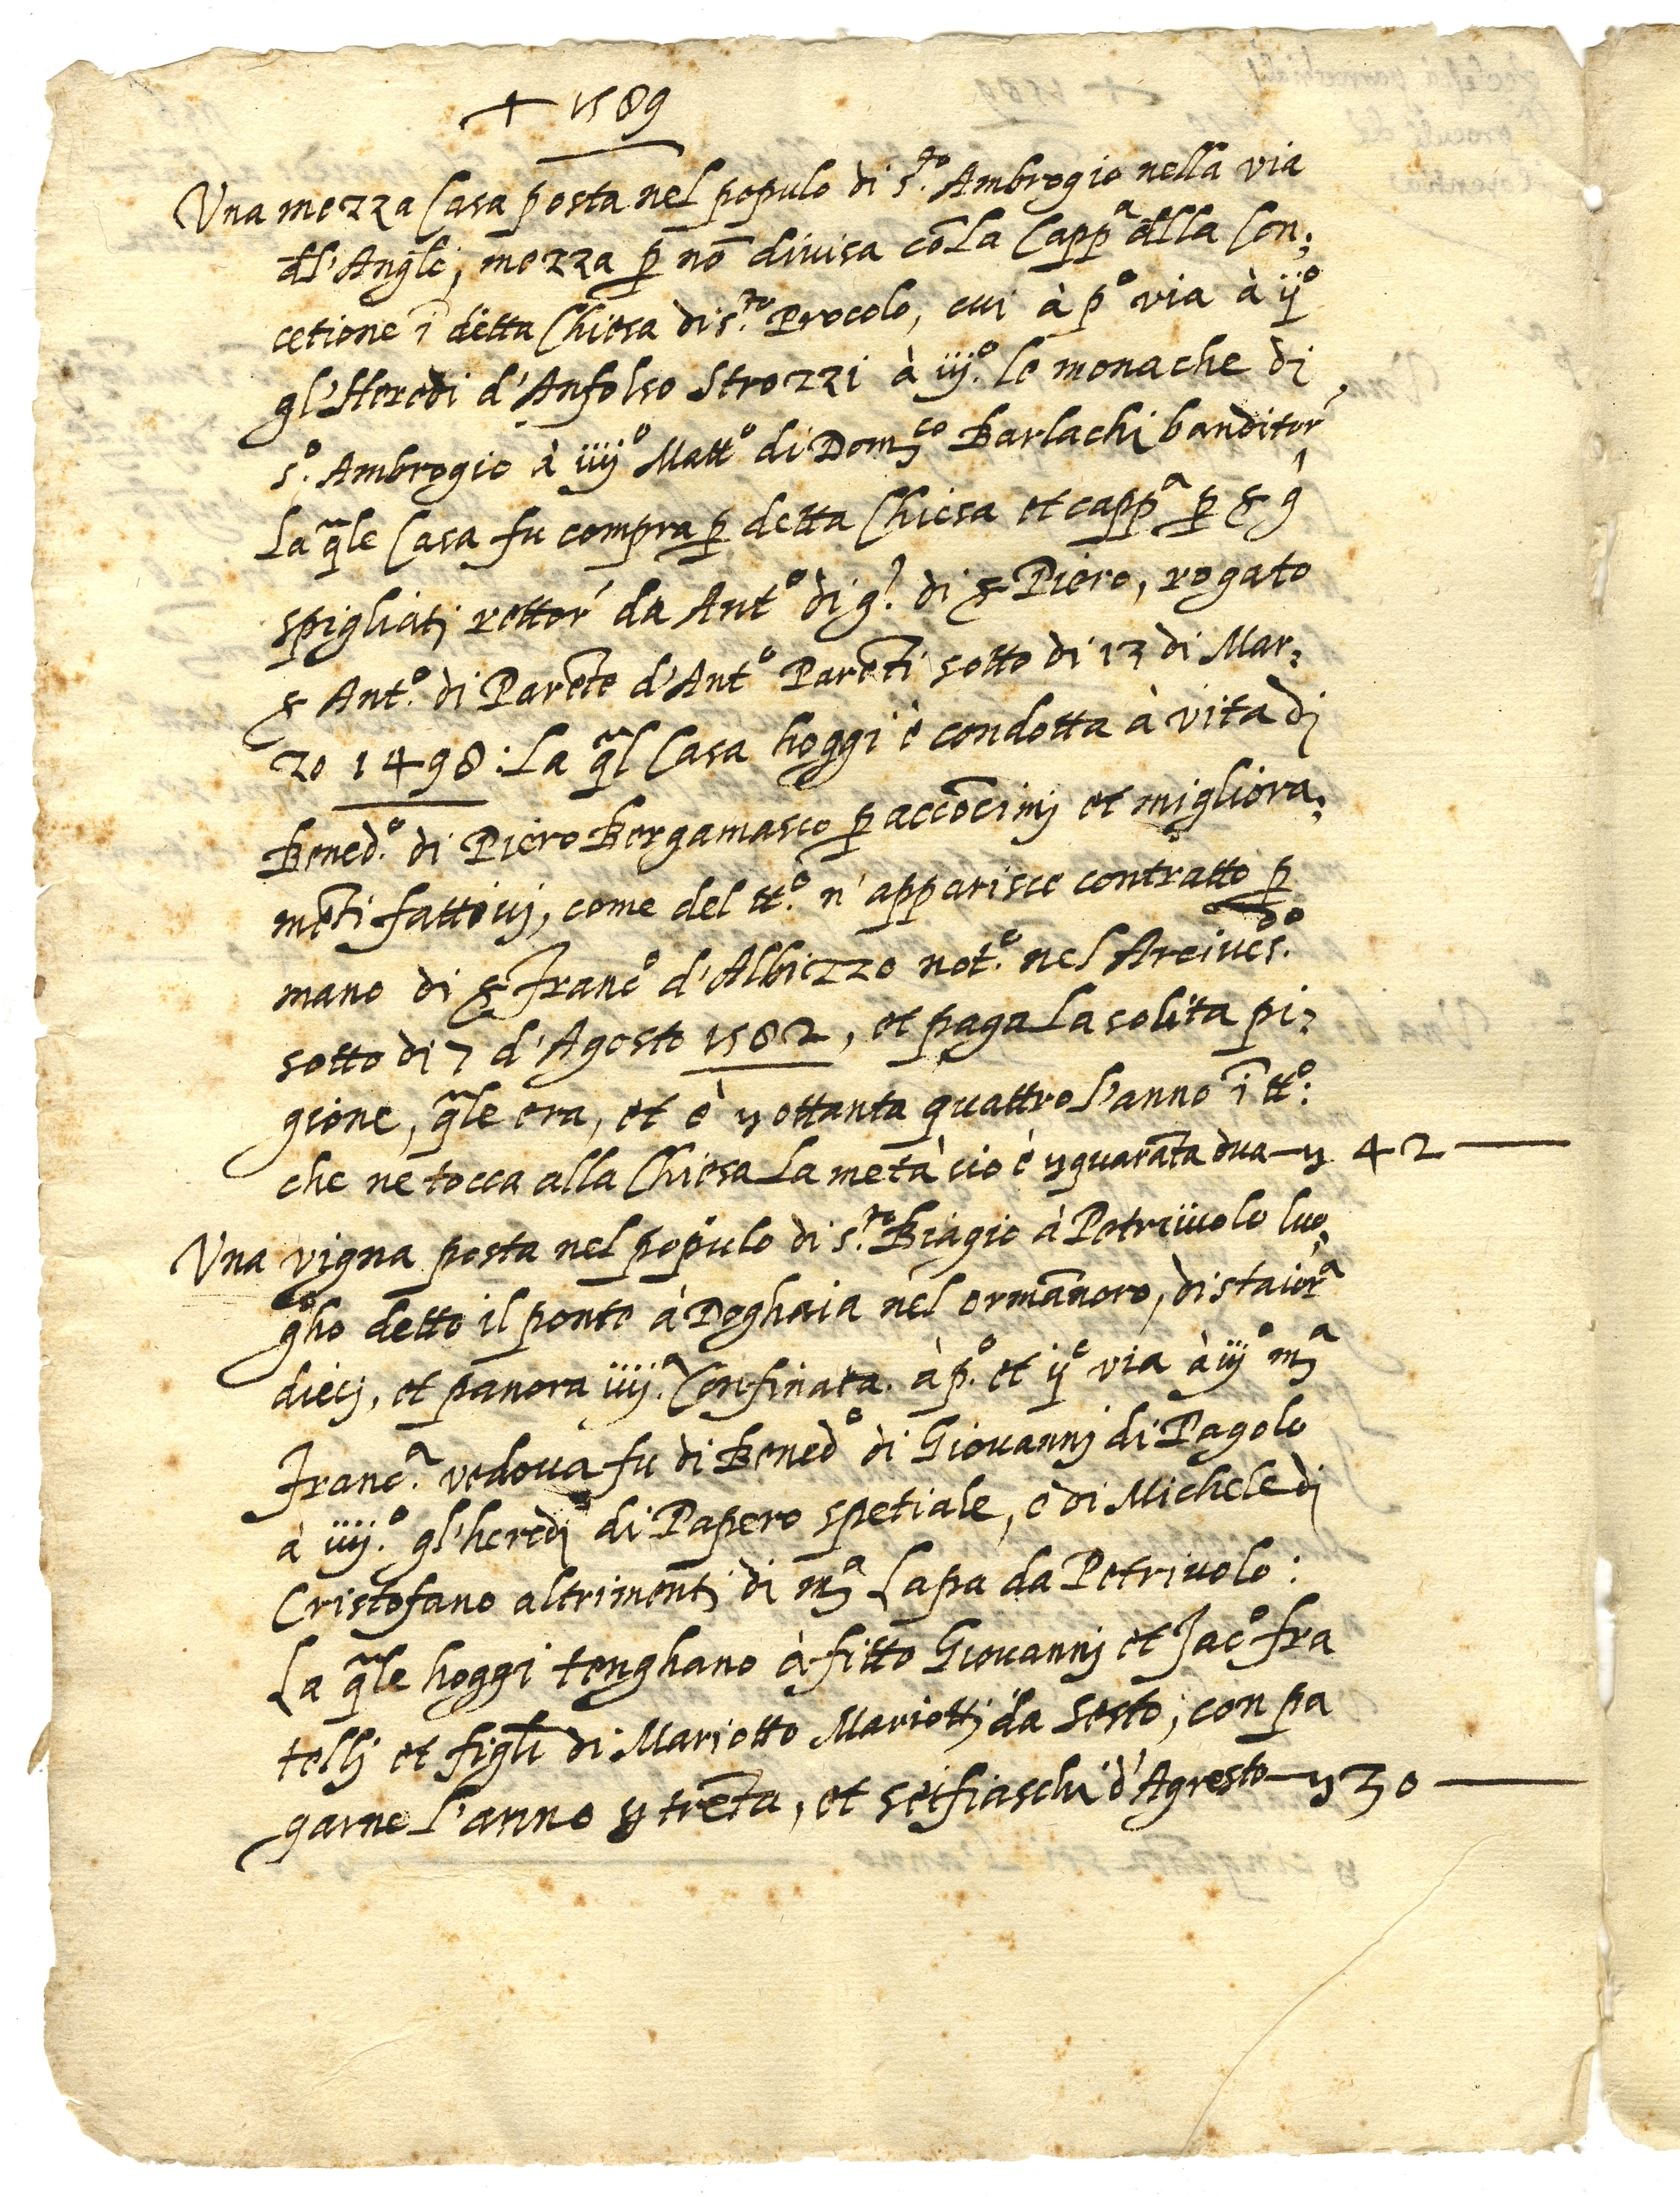 + 1589
Una mezza Casa posta nel populo di s.to Ambrogio nella via
dl'Angło, mezza p nō divisa cō la Capp.a dlla Con:
cetione ī detta Chiesa di s.to Procolo, cui à p.o via à ij.o
gl'Heredi d'Anfolso Strozzi à iij.o le monache di
s.o Ambrogio à iiij.o Matt.o di Dom.co Barlachi banditor
La q̃le Casa fu compra p detta Chiesa et capp.a p
spigliati rettor da Ant.o di g.i di Piero, rogato
Ant.o di Parēte d'Ant.o Parēti sotto di 13 di Mar:
zo 1498: La q̃l Casa hoggi è condotta à vita di
Bened.o di Piero Bergamasco p accōcimj et migliora:
mēti fattovj, come del tt.o n'apparisce contratto p
mano di Franc.o d'Albizzo not.o nel Arcives.do
sotto di 7 d'Agosto 1582, et paga la solita pi:
gione, q̃le era, et è ottanta quattro l'anno ī tt.o:
che ne tocca alla Chiesa la metà cio è quarāta dua 42
Una vigna posta nel populo di s.to Biagio à Petriuolo luo:
gho detto il ponte à Doghaia nel ormānoro, di staior.a
diecj, et panora iiij.o Confinata. à p.o et ij.o via à iij.o m.a
Franc.a vedova fu di Bened.o di Giovannj di Pagolo
à iiij.o gl'heredj di Papero spetiale, e di Michele dj
Cristofano altrimentj di m.a Lapa da Petriuolo:
La q̃le hoggi tenghano à fitto Giovannj et Jac.o fra
tellj et figłi di Mariotto Mariottj da Sesto, con pa
garne l'anno trēta, et sei fiaschi d'Agresto 30